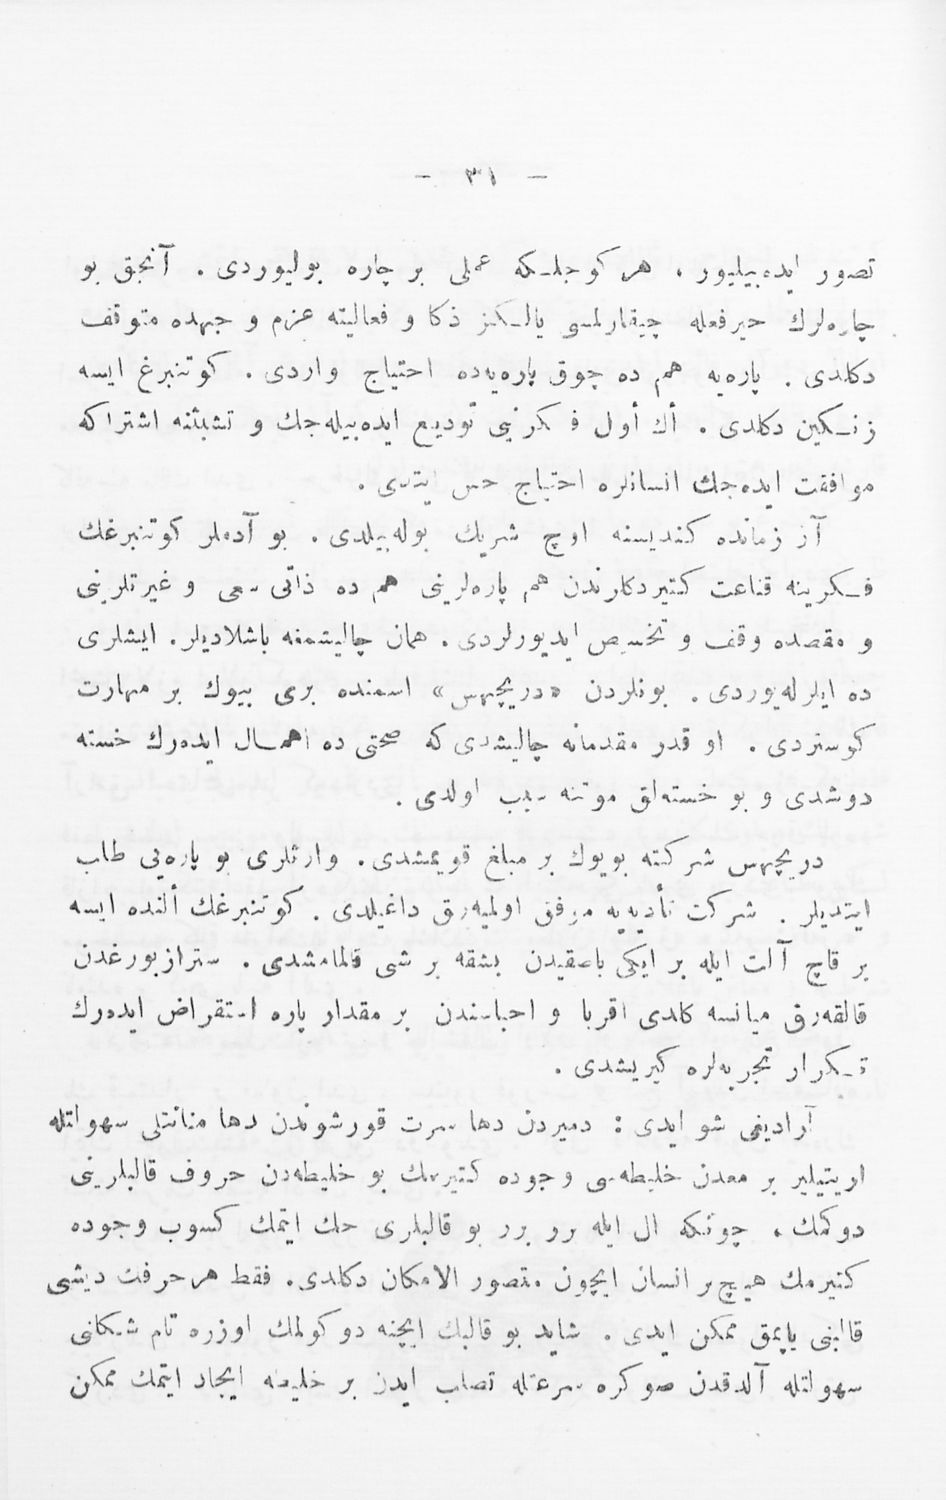 - ٣١ -
تصور ايده‌بيليور ، هر كوجلـكه عملى بر چاره بوليوردى . آنجق بو
چاره‌لرك حيز فعله چيقارلمسى يالـكز ذكا و فعاليته عزم و جهده متوقف
دكلدى . پاره‌يه هم ده چوق پاره‌يه‌ده احتياج واردى . كوتنبرغ ايسه
زنـكين دكلدى . أك أول فـكرينى توديع ايده‌بيله‌جك و تشبثنه اشتراكه
موافقت ايده‌جك انسانلره احتياج حس ايتدى .
آز زمانده كنديسنه اوچ شريك بوله‌بيلدى . بو آدملر كوتنبرغك
فـكرينه قناعت كتيردكلرندن هم پاره‌لرينى هم ده ذاتى سعى و غيرتلرينى
و مقصده وقف و تخصيص ايديورلردى . همان چاليشمغه باشلاديلر . ايشلرى
ده ايلرله‌يوردى . بونلردن «دريچهس» اسمنده برى بيوك بر مهارت
كوستردى . او قدر مقدمانه چاليشدى كه صحتى ده اهمـال ايده‌رك خسته
دوشدى و بو خسته‌لق موتنه سبب اولدى .
دريچهس شركته بويوك بر مبلغ قويمشدى . وارثلرى بو پاره‌يى طلب
ايتديلر . شركت تأديه‌يه موفق اولميه‌رق داغيلدى . كوتنبرغك ألنده ايسه
بر قاچ آلت ايله بر ايكى باصقيدن بشقه بر شى قالمامشدى . ستراز‌بورغدن
قالقه‌رق ميانسه كلدى اقربا و احباسندن بر مقدار پاره استقراض ايده‌رك
تـكرار تجربه‌لره كيريشدى .
آراديغى شو ايدى : دميردن دها سرت قورشوندن دها متانتلى سهولتله
اريتيلير بر معدن خليطه‌سى وجوده كتيرمك بو خليطه‌دن حروف قالبلرينى
دوكمك ، چونكه ال ايله برر برر بو قالبلرى حك ايتمك كسوب وجوده
كتيرمك هيچ بر انسان ايچون متصور الامكان دكلدى . فقط هر حرفك ديشى
قالبنى ياپمق ممكن ايدى . شايد بو قالبك ايچنه دوكولمك اوزره تام شـكلنى
سهولتله آلدقدن صوكره سرعتله تصلب ايدن بر خليطه ايجاد ايتمك ممكن